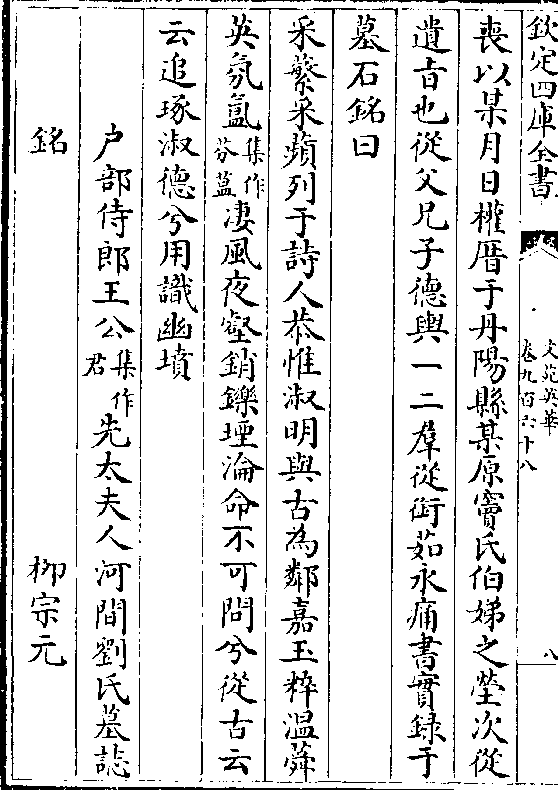 欽定四庫全書
文苑英華
卷九百六十八
八
喪以某月日權厝于丹陽縣某原竇氏伯娣之塋次從
遺㫖也從父兄子德輿一二羣從銜茹永痛書實録于
墓石銘曰
采蘩采蘋列于詩人恭惟淑明與古為鄰嘉玉粹温蕣
英氛氲集作芬蒀凄風夜壑銷鑠堙淪命不可問兮從古云
云追琢淑德兮用識幽墳
户部侍郎王公集作君先太夫人河間劉氏墓誌
銘 柳宗元